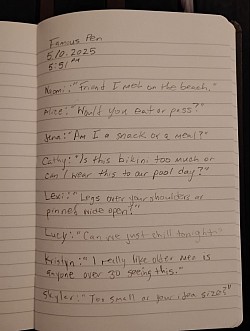 Famous Pen
5/0.2025
5:51 PM
Naomi: "Friend I met on the beach."
Alice: "Would you eat or pass?"
Jena: "Am I a snack or a meal?"
Cathy: "Is this bikini too much or
can I wear this to our pool day?"
Lexi: "Legs over your shoulders or
pinned wide open?"
Lucy: "Can we just chill tonight"
Kristyn: "I really like older men is
anyone over 30 seeing this."
Skylar: "Too small or your idea size?"